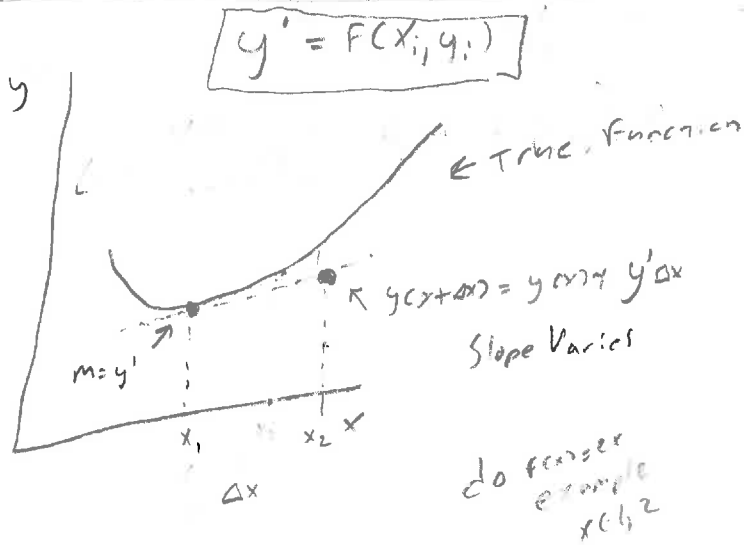 y' = F(xᵢ, yᵢ)
y
← True Function
y(x+Δx) = y(x) + y'Δx
Slope Varies
m = y'
x₁
x₂
x
Δx
do